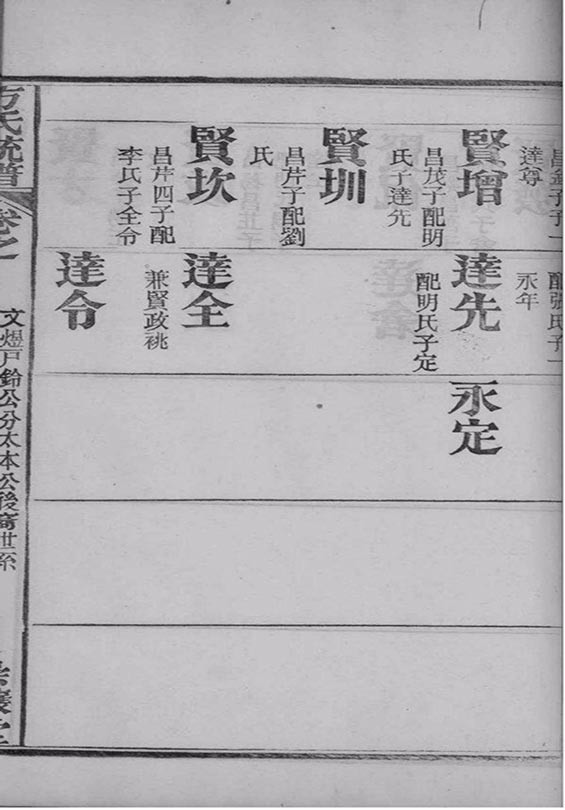 昌金子子一
達尊
賢增
昌茂子配明
氏子達先
賢圳
昌芹子配劉
氏
賢坎
昌芹四子配
李氏子全令
配張氏子一
永年
達先
配明氏子定
達全
兼賢政祧
達令
永定
方氏統譜
卷之
文煜戶鈴公分太本公後裔世系